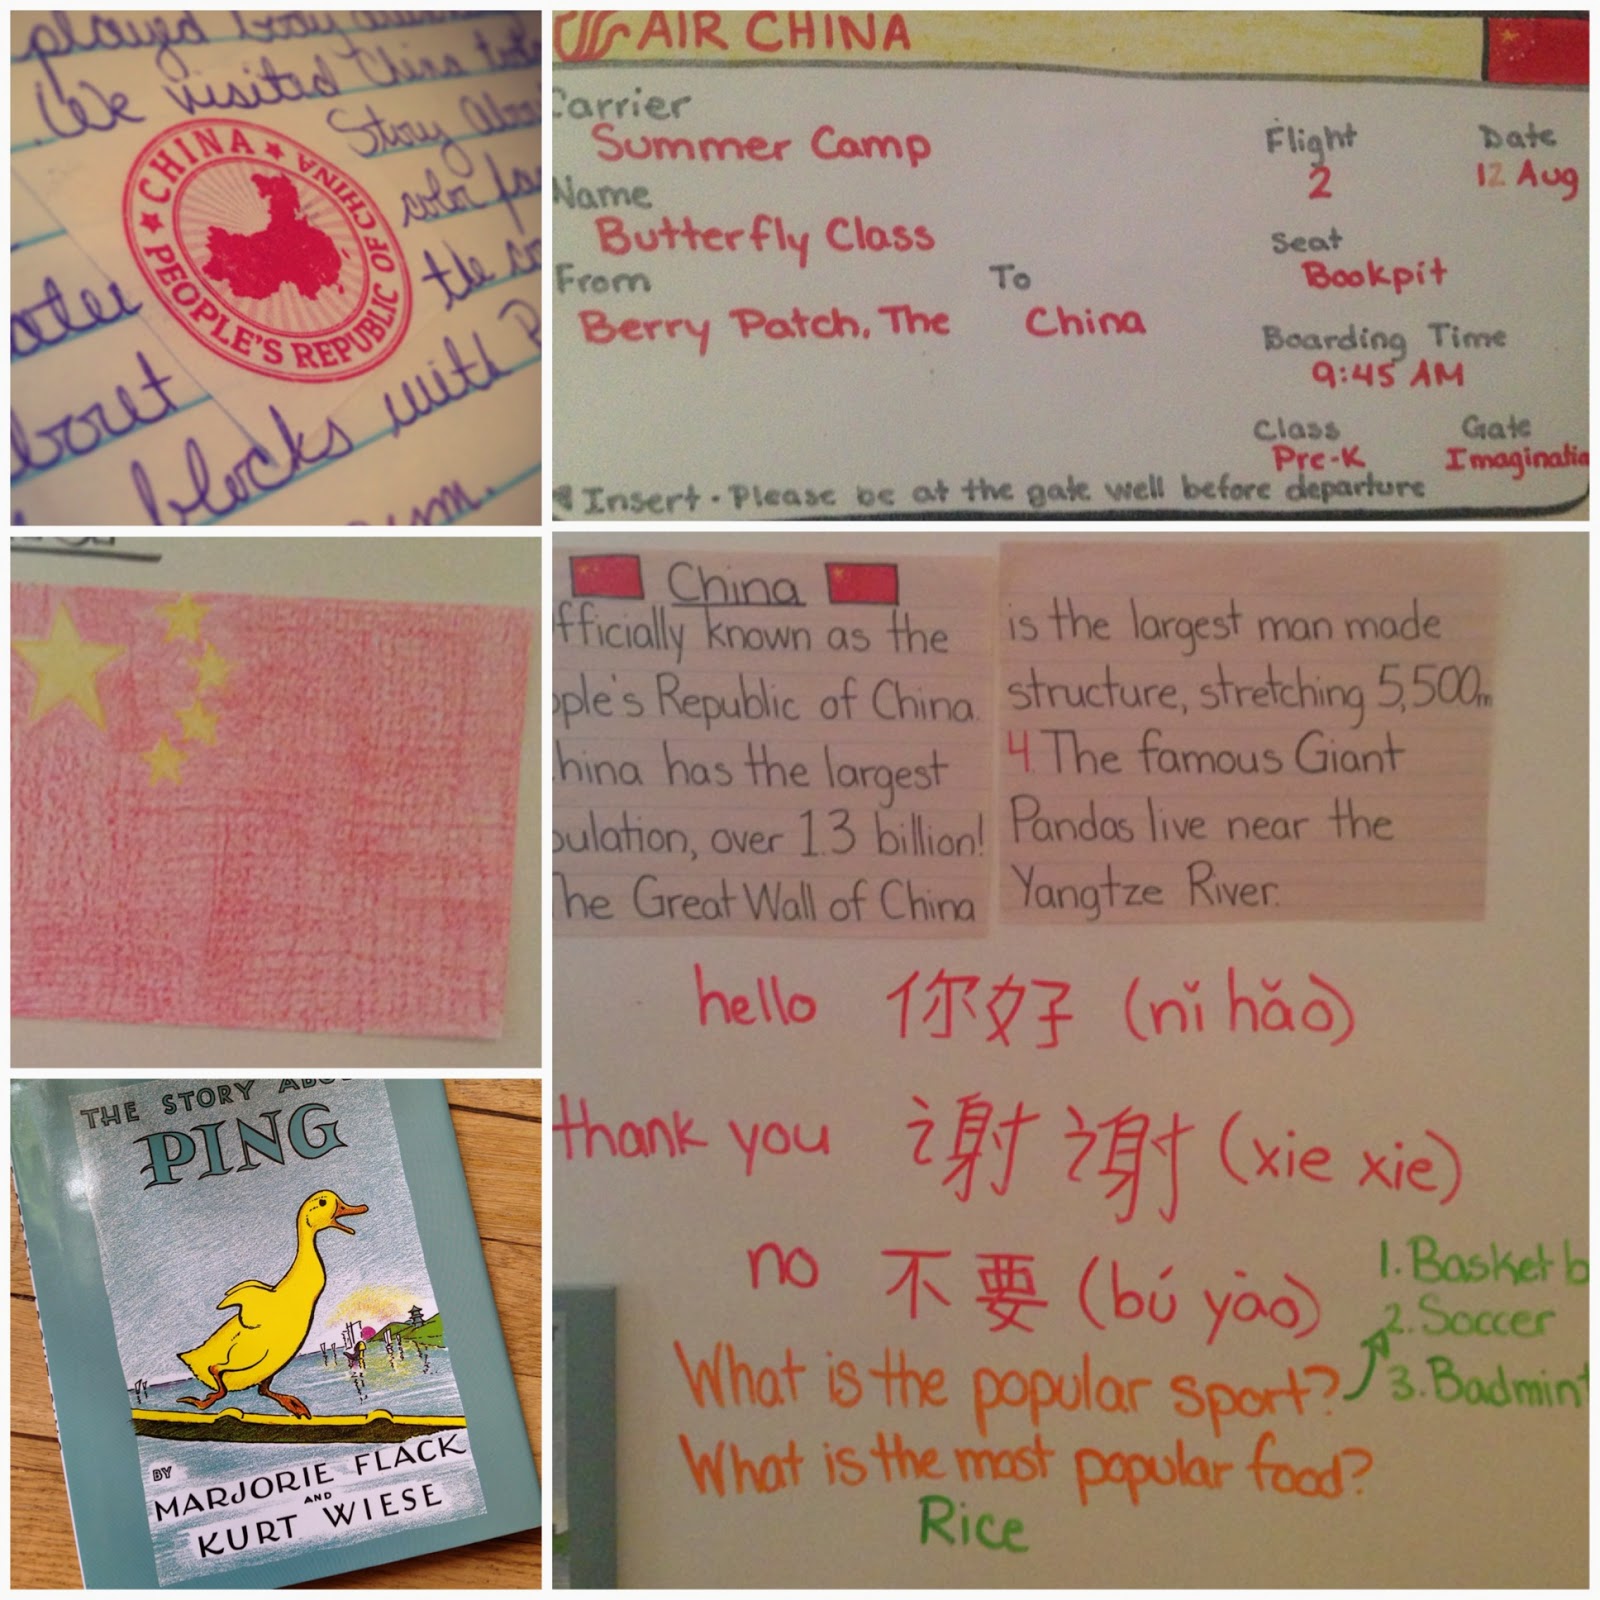 played body
We visited China
Story About
color
the
about
blocks with
CHINA
PEOPLE'S REPUBLIC OF CHINA
AIR CHINA
Carrier
Summer Camp
Flight
2
Date
12 Aug
Name
Butterfly Class
Seat
Bookpit
From
Berry Patch, The
To
China
Boarding Time
9:45 AM
Class
Pre-K
Gate
Imaginatio
Insert · Please be at the gate well before departure
THE STORY ABOU
PING
BY
MARJORIE FLACK
AND
KURT WIESE
China
fficially known as the
ople's Republic of China.
hina has the largest
pulation, over 1.3 billion!
he Great Wall of China
is the largest man made
structure, stretching 5,500m
4. The famous Giant
Pandas live near the
Yangtze River.
hello 你好 (nǐ hǎo)
thank you 谢谢 (xie xie)
no 不要 (bú yào)
1. Basket b
2. Soccer
3. Badmint
What is the popular sport?
What is the most popular food?
Rice